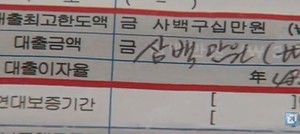 대출최고한도액 금 사백구십만원 (₩
대출금액 금 삼백만원 (
대출이자율 年
연대보증기간 [
[